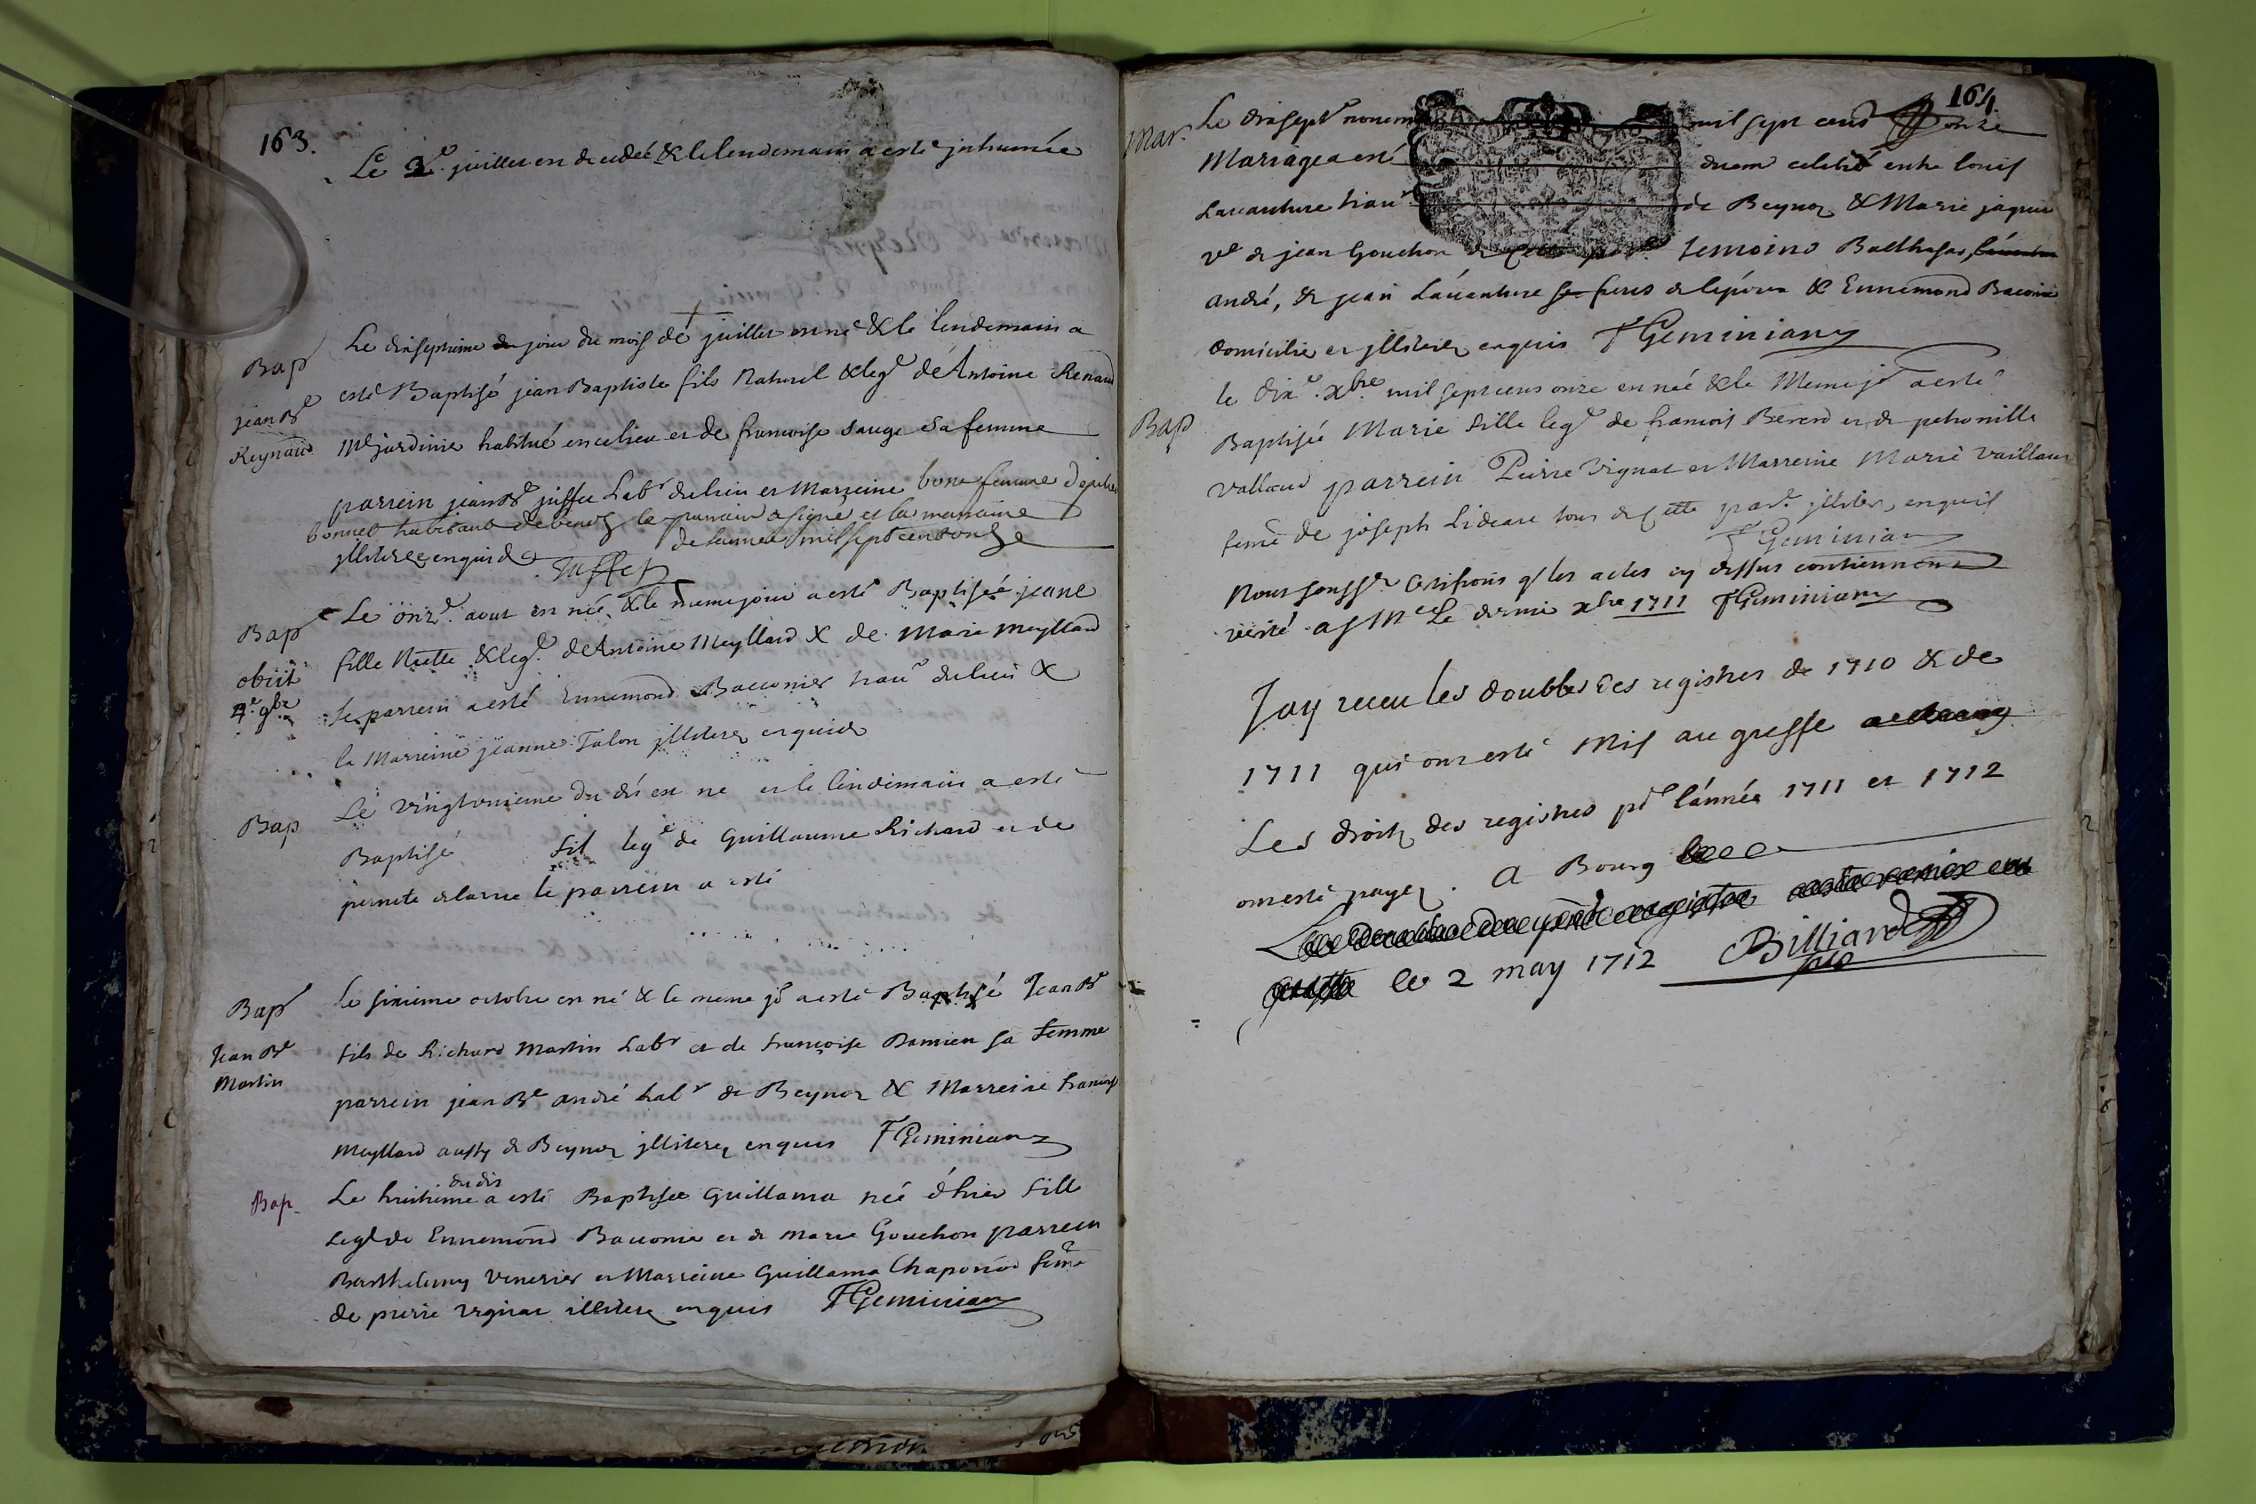 163.
Le 2e. juillet en decedé & le lendemain a esté jnhumée
Bap
Le dixseptieme jour du mois de juillet en né & le lendemain a
jean Bte
esté Baptisé jean Baptiste fils Naturel & leg.e de Antoine Renaud
Reynaud
Me jardinie habitué en ce lieu et de francoise sauge sa femme
parrein jean Bte juffet Labr du lieu et Marreine bone femme
bonnet habitant de le parrain a signé et la marraine
jlliteree enquis de lannee mil sept cent onze
Juffet
Bap
Le onze. aout en née & le meme jour a esté Baptisée jeane
obiit
fille Nlle & leg.e de Antoine Meyllard & de Marie Meyllard
4e. 9bre
le parrein a esté Ennemond Bacconier trau du lieu &
la Marreine jeanne Talon jlliterez enquis
Bap
Le vingtonsieme du dt est ne et le lendemain a esté
Baptisé fil leg.e de Guillaume Richard et de
pernete delarue le parrein a esté
Bap
Le sixieme octobre en né & le meme jr a esté Baptisé Jean Bt
Jean Bte
Martin
fils de Richard Martin Labr et de francoise Damien sa femme
parrein jean Bte andré habr de Beynoz & Marreine francoise
Meyllard aussy de Beynoz jlliterez enquis F Geminian
Bap.
du dit
Le huitieme a esté Baptisee Guillama née d'hier fille
Legt de Ennemond Bacconie et de Marie Gouchon parrein
Barthelemy venerier et Marreine Guillama Chaponod feme
de pierre vignat illitere enquis F Geminian
164
Mar.
Le dixsept novem mil sept cens onze
Mariage a esté duem celebré entre louis
Lauanture trau de Beynoz & Marie jaquin
ve de jean Gouchon de Cette par. Temoins Balthasar
andré, & jean Lauanture freres de lepoux & Ennemond Baconie
domicilie et jlliterez enquis F Geminian
Bap
le dixe. xbre mil sept cens onze en née & le Meme jr a esté
Baptisée Marie fille leg.e de francois Berend et de petronille
valland parrein Pierre Vignat et Marreine Marie vaillant
feme de joseph Lideare tous de Cette par. jlliter, enquis
F Geminian
Nous soussé Certifions q les actes cy dessus contiennent
verité a st Mce Le dernie xbre 1711 F Geminian
Jay receu les doubles des registres de 1710 & de
1711 qui ont esté Mis au greffe
Les droitz des registres pr l'année 1711 et 1712
ont esté payez. A Bourg
le 2 may 1712 Billiard